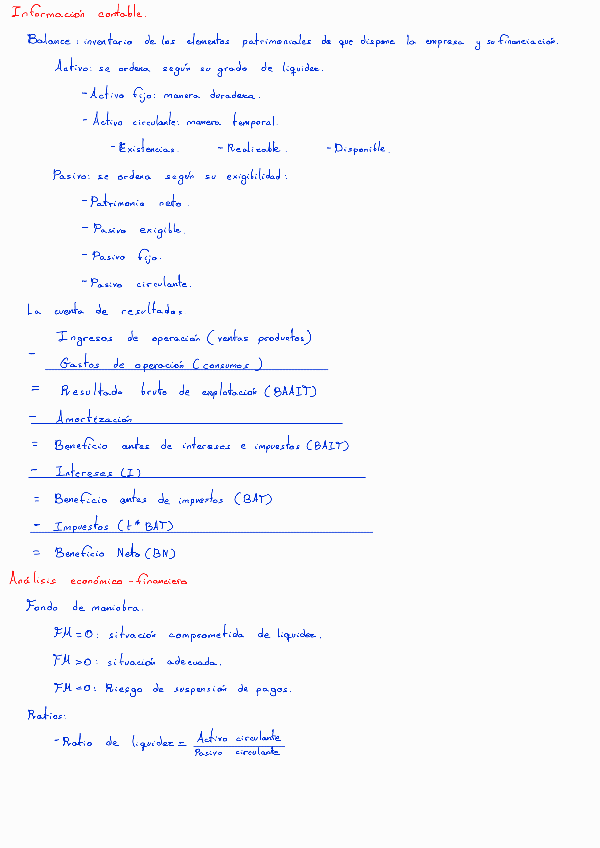 Información contable.
Balance: inventario de los elementos patrimoniales de que dispone la empresa y su financiación.
Activo: se ordena según su grado de liquidez.
- Activo fijo: manera duradera.
- Activo circulante: manera temporal.
- Existencias. - Realizable. - Disponible.
Pasivo: se ordena según su exigibilidad:
- Patrimonio neto.
- Pasivo exigible.
- Pasivo fijo.
- Pasivo circulante.
La cuenta de resultados
Ingresos de operación (ventas productos)
- Gastos de operación (consumos)
= Resultado bruto de explotación (BAAIT)
- Amortización
= Beneficio antes de intereses e impuestos (BAIT)
- Intereses (I)
= Beneficio antes de impuestos (BAT)
- Impuestos (t* BAT)
= Beneficio Neto (BN)
Análisis económico - financiero
Fondo de maniobra.
FM = 0: situación comprometida de liquidez.
FM > 0: situación adecuada.
FM < 0: Riesgo de suspensión de pagos.
Ratios:
- Ratio de liquidez = Activo circulante
Pasivo circulante